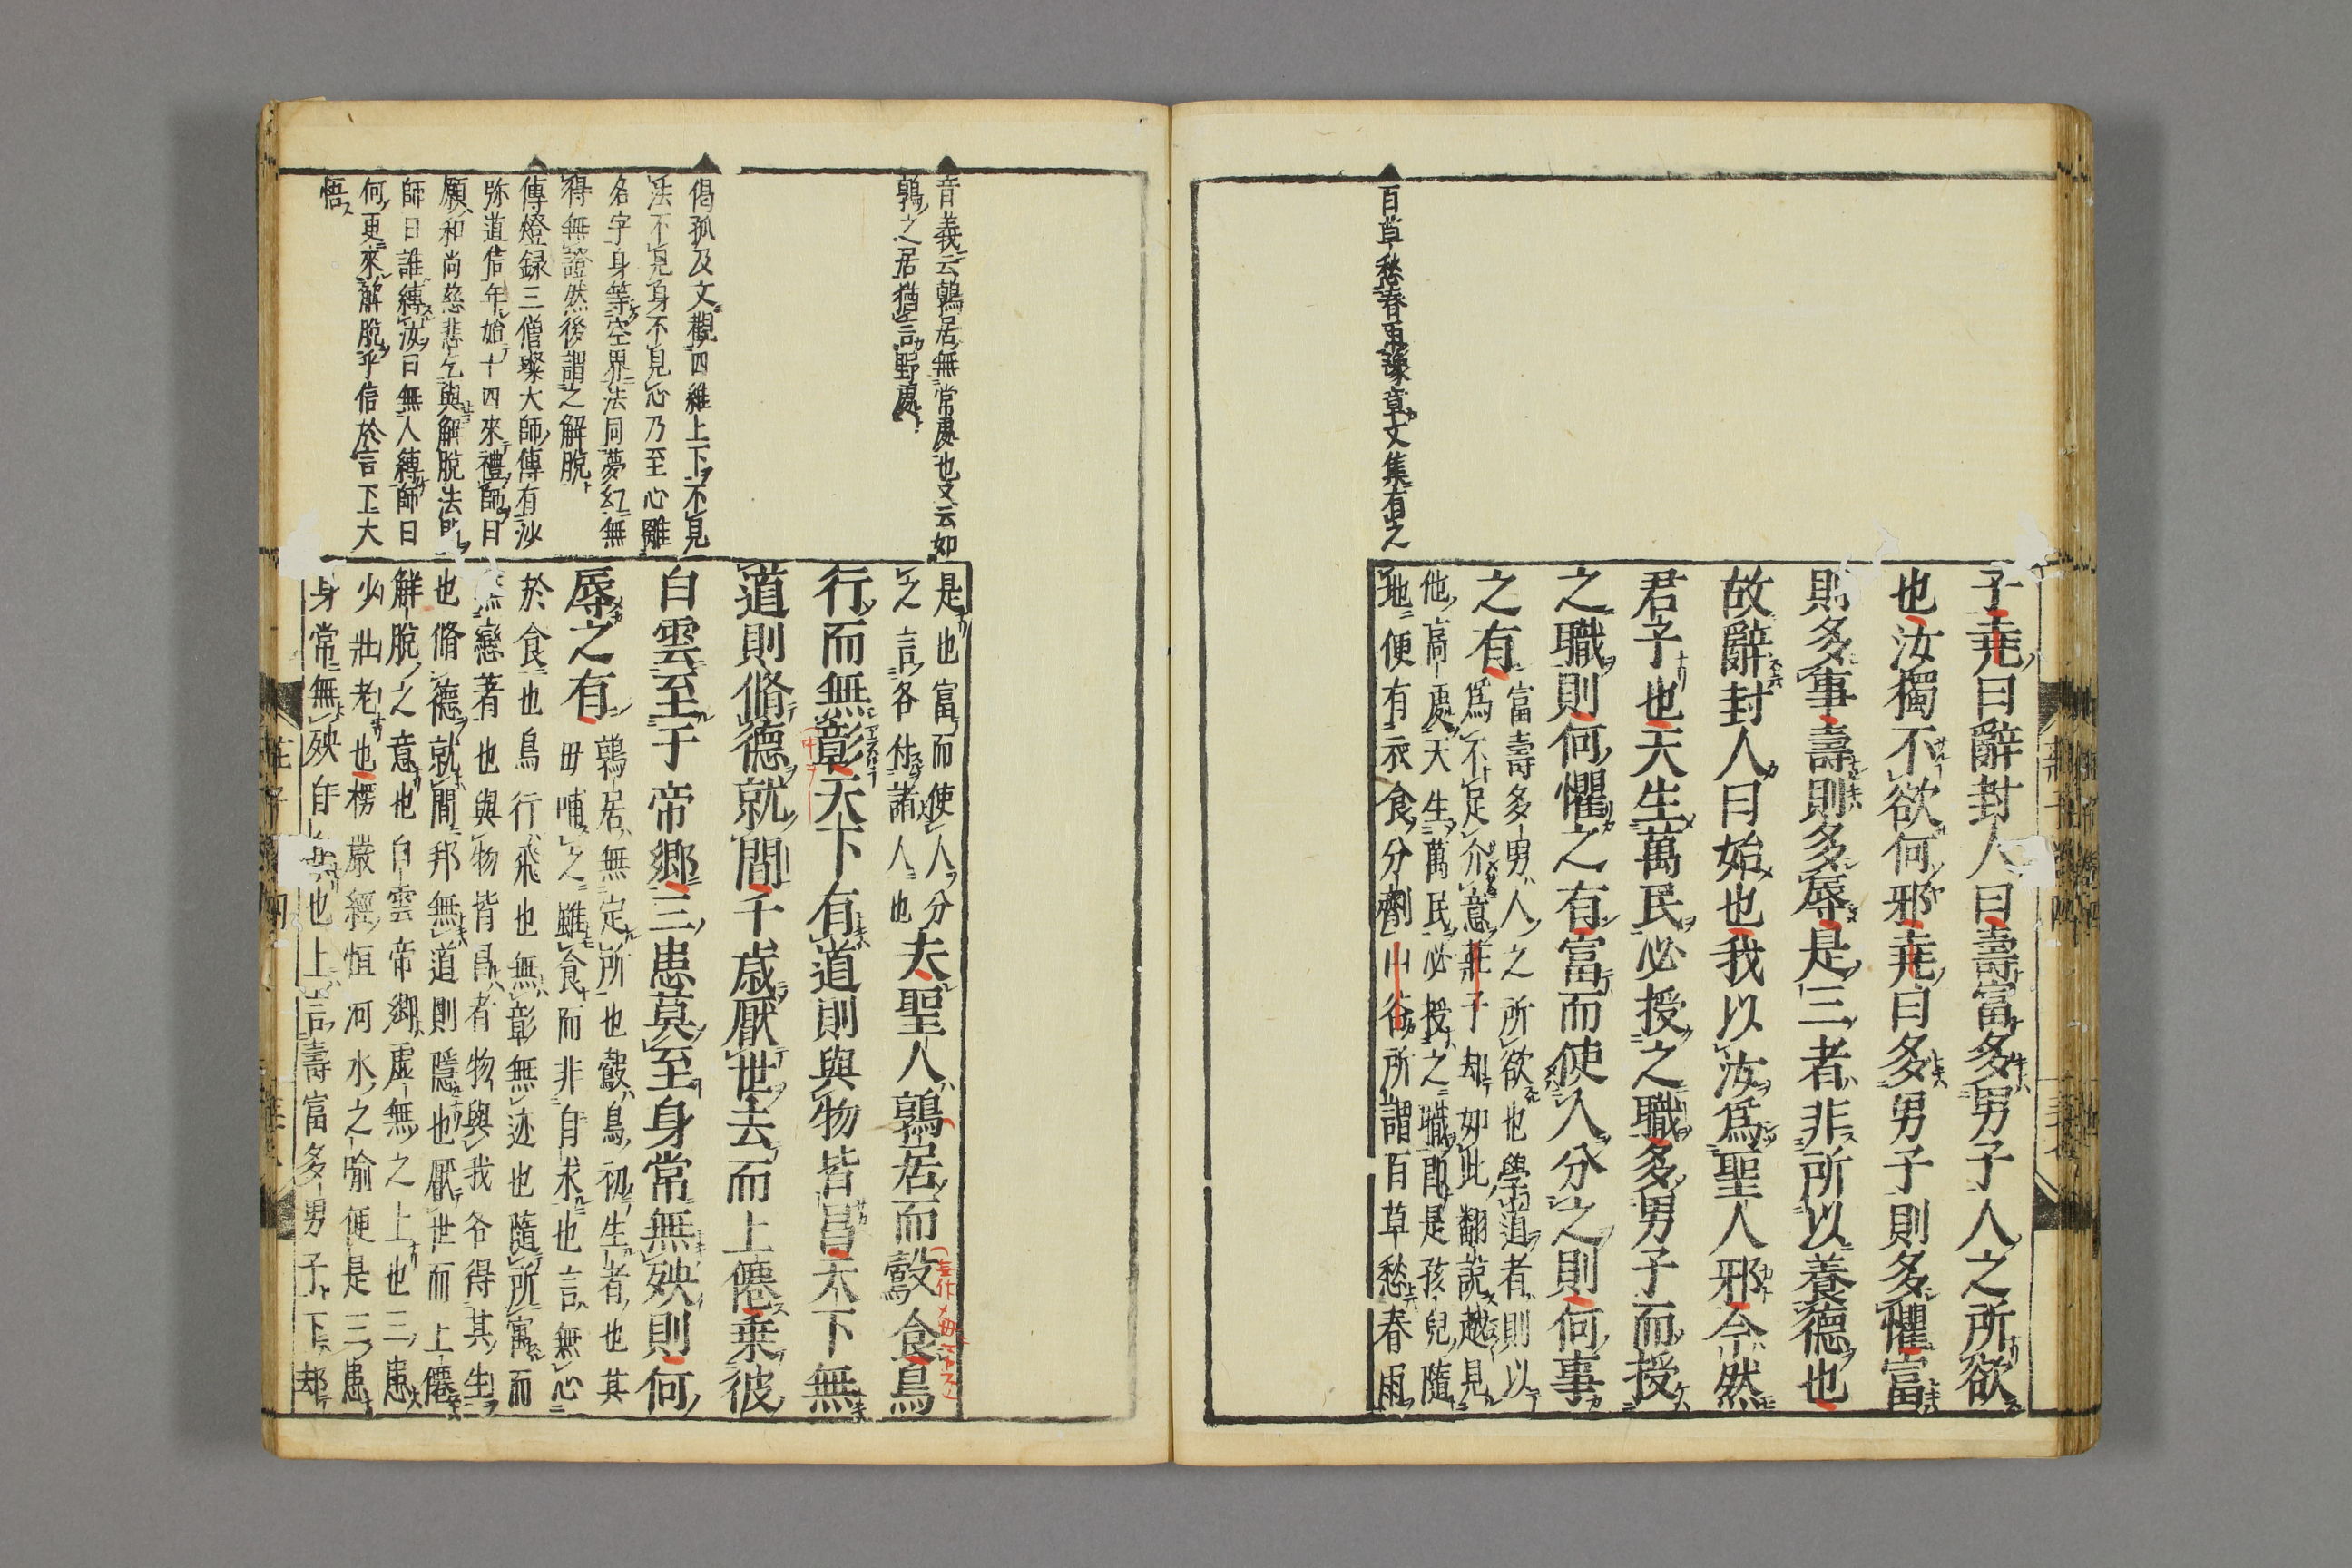 百草愁春雨豫章文集有之
子堯曰辭封人曰壽富多男子人之所欲
也汝獨不欲何邪堯曰多男子則多懼富
則多事壽則多辱是三者非所以養德也
故辭封人曰始也我以汝爲聖人邪今然
君子也天生萬民必授之職多男子而授
之職則何懼之有富而使人分之則何事
之有
富壽多男人之所欲也學道者則以
爲不足介意莊子却如此翻說越見
他高處天生萬民必授之職即是孩兒隨
地便有衣食分劑山谷所謂百草愁春雨
音義云鶉居無常處也又云如
鶉之居猶言野處
偈孤及文觀四維上下不見
法不見身不見心乃至心離
名字身等空界法同夢幻無
得無證然後謂之解脫
傳燈録三僧璨大師傳有沙
弥道信年始十四來禮師曰
願和尚慈悲乞與解脫法門
師曰誰縛汝曰無人縛師曰
何更來解脫乎信於言下大
悟
是也富而使人分
之言各付諸人也
夫聖人鶉居而鷇食鳥
行而無彰天下有道則與物皆昌天下無
道則脩德就間千歲厭世去而上僊乗彼
白雲至于帝鄉三患莫至身常無殃則何
辱之有
鶉居無定所也鷇鳥初生者也其
毋哺之雖食而非自求也言無心
於食也鳥行飛也無彰無迹也隨所寓而
無戀著也與物皆昌者物與我各得其生
也脩德就間邦無道則隱也厭世而上僊
解脫之意也白雲帝鄉虛無之上也三患
少壯老也楞嚴經恒河水之喻便是三患
身常無殃自無也上言壽富多男子下却